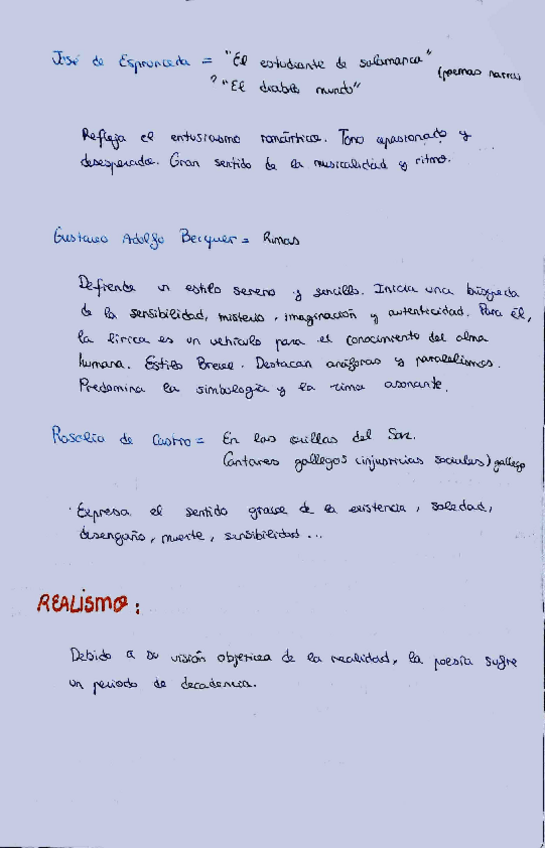 José de Espronceda = "El estudiante de salamanca"
(poemas narra
? "El diablo mundo"
Refleja el entusiasmo romántico. Tono apasionado y
desesperado. Gran sentido de la musicalidad y ritmo.
Gustavo Adolfo Becquer = Rimas
Defiende un estilo sereno y sencillo. Inicia una búsqueda
de la sensibilidad, misterio, imaginación y autenticidad. Para él,
la lírica es un vehículo para el conocimiento del alma
humana. Estilo Breve. Destacan anáforas y paralelismos.
Predomina la simbología y la rima asonante.
Rosalía de Castro = En las orillas del Sar.
Cantares gallegos (injusticias sociales) gallego
Expresa el sentido grave de la existencia, soledad,
desengaño, muerte, sensibilidad ...
REALISMO:
Debido a su visión objetiva de la realidad, la poesía sufre
un periodo de decadencia.